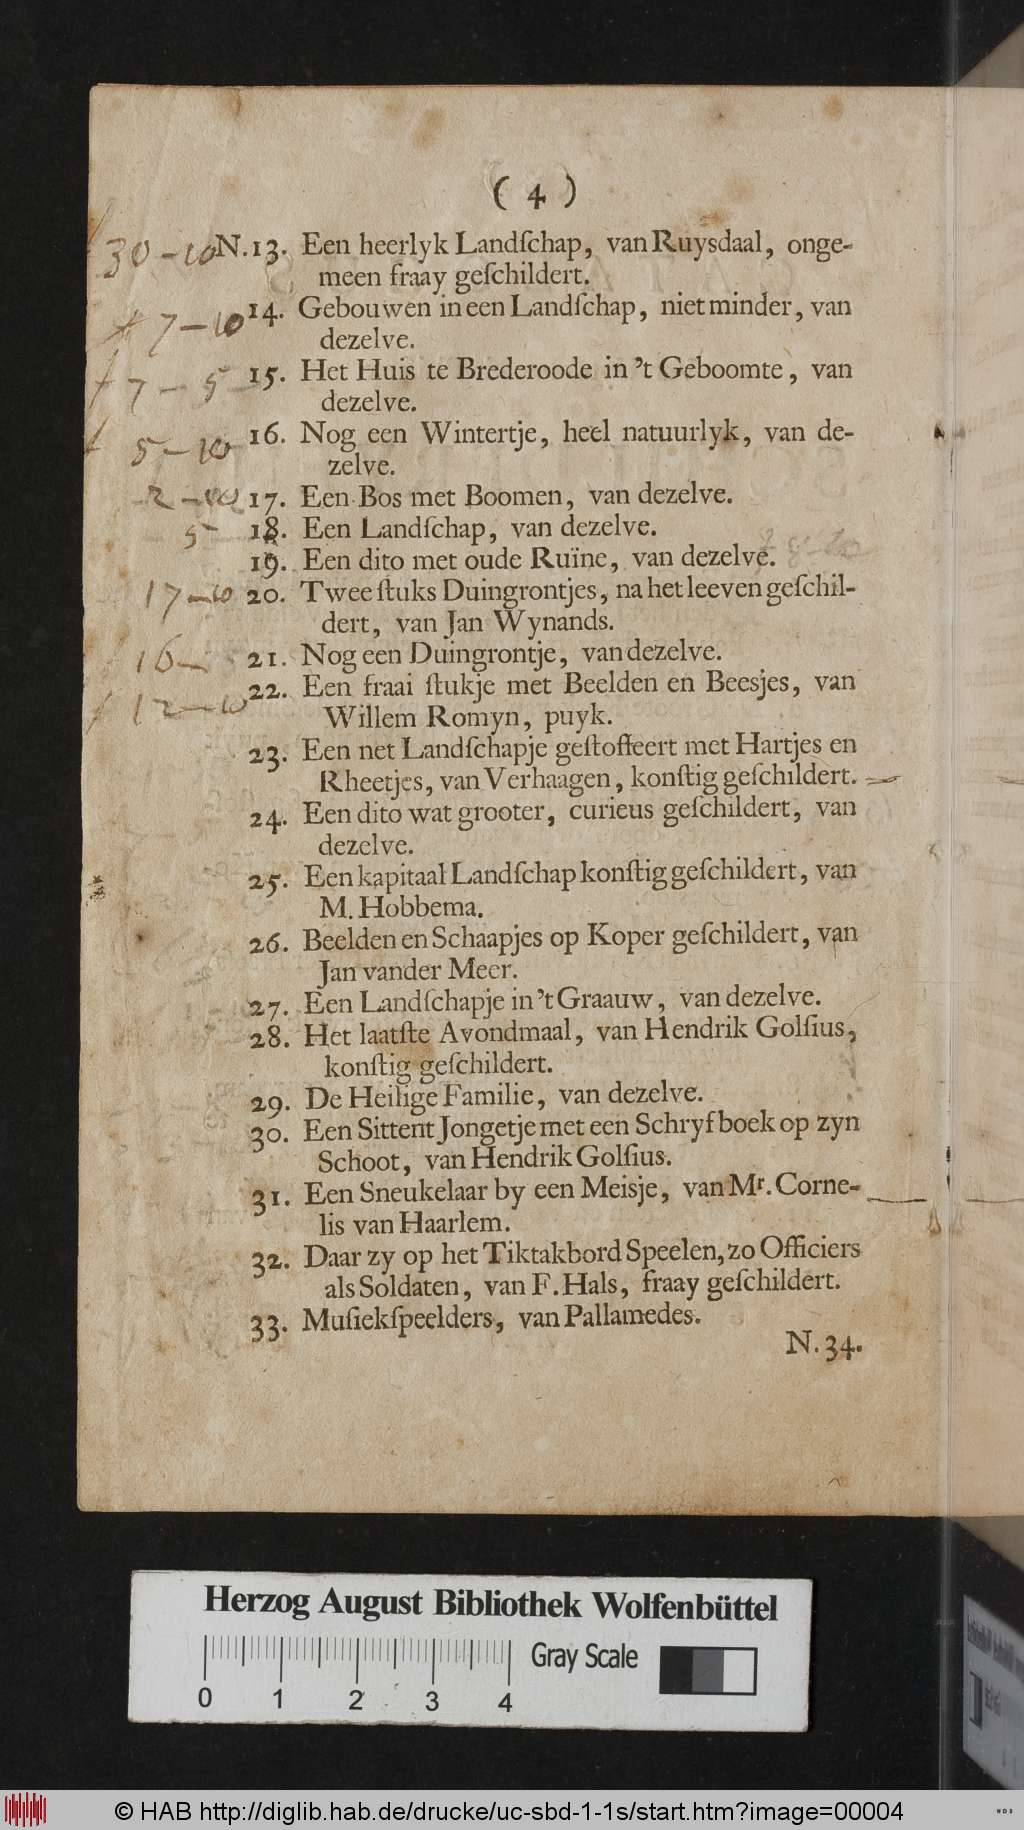 ( 4 )
30-10 N.13. Een heerlyk Landſchap, van Ruysdaal, onge-
meen fraay geſchildert.
7-10 14. Gebouwen in een Landſchap, niet minder, van
dezelve.
7-5 15. Het Huis te Brederoode in 't Geboomte, van
dezelve.
5-10 16. Nog een Wintertje, heel natuurlyk, van de-
zelve.
2-10 17. Een Bos met Boomen, van dezelve.
5 18. Een Landſchap, van dezelve.
19. Een dito met oude Ruïne, van dezelve.
17-10 20. Twee ſtuks Duingrontjes, na het leeven geſchil-
dert, van Jan Wynands.
16- 21. Nog een Duingrontje, van dezelve.
12-10 22. Een fraai ſtukje met Beelden en Beesjes, van
Willem Romyn, puyk.
23. Een net Landſchapje geſtoffeert met Hartjes en
Rheetjes, van Verhaagen, konſtig geſchildert.
24. Een dito wat grooter, curieus geſchildert, van
dezelve.
25. Een kapitaal Landſchap konſtig geſchildert, van
M. Hobbema.
26. Beelden en Schaapjes op Koper geſchildert, van
Jan vander Meer.
27. Een Landſchapje in 't Graauw, van dezelve.
28. Het laatſte Avondmaal, van Hendrik Golſius,
konſtig geſchildert.
29. De Heilige Familie, van dezelve.
30. Een Sittent Jongetje met een Schryf boek op zyn
Schoot, van Hendrik Golſius.
31. Een Sneukelaar by een Meisje, van Mr. Corne-
lis van Haarlem.
32. Daar zy op het Tiktakbord Speelen, zo Officiers
als Soldaten, van F. Hals, fraay geſchildert.
33. Muſiekſpeelders, van Pallamedes.
N. 34.
Herzog August Bibliothek Wolfenbüttel
Gray Scale
0 1 2 3 4
© HAB http://diglib.hab.de/drucke/uc-sbd-1-1s/start.htm?image=00004